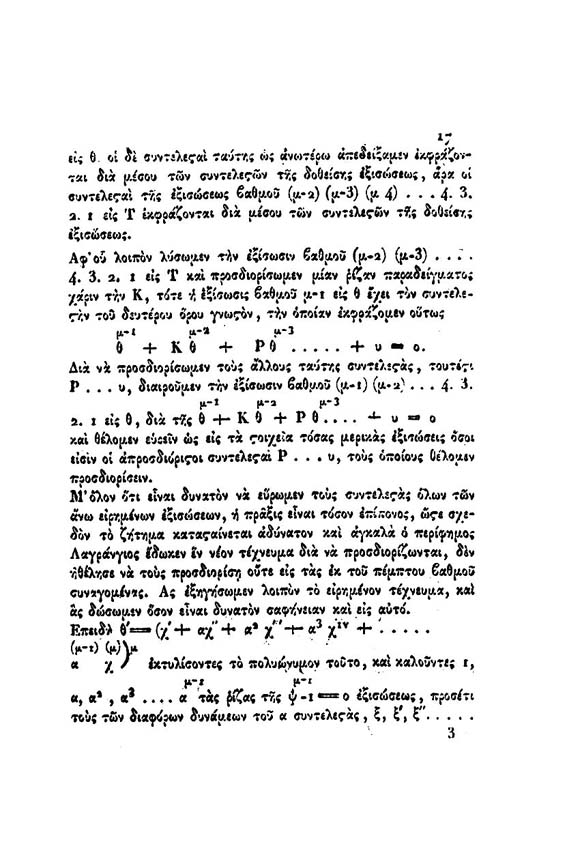 17
εἰς θ. οἱ δὲ συντελεϛαὶ ταύτης ὡς ἀνωτέρω ἀπεδείξαμεν ἐκφράζον-
ται διὰ μέσου τῶν συντελεϛῶν τῆς δοθείσης ἐξισώσεως, ἄρα οἱ
συντελεϛαὶ τῆς ἐξισώσεως βαθμοῦ (μ-2) (μ-3) (μ 4) . . . 4. 3.
2. 1 εἰς Τ ἐκφράζονται διὰ μέσου τῶν συντελεϛῶν τῆς δοθείσης
ἐξισώσεως.
Ἀφ' οὗ λοιπὸν λύσωμεν τὴν ἐξίσωσιν βαθμοῦ (μ-2) (μ-3) . . . .
4. 3. 2. 1 εἰς Τ καὶ προσδιορίσωμεν μίαν ῥίζαν παραδείγματος
χάριν τὴν Κ, τότε ἡ ἐξίσωσις βαθμοῦ μ-1 εἰς θ ἔχει τὸν συντελε-
ϛὴν τοῦ δευτέρου ὅρου γνωϛὸν, τὴν ὁποίαν ἐκφράζομεν οὕτως
μ-1 μ-2 μ-3
θ + Κ θ + Ρ θ . . . . . + υ = ο.
Διὰ νὰ προσδιορίσωμεν τοὺς ἄλλους ταύτης συντελεϛὰς, τουτέϛι
Ρ . . . υ, διαιροῦμεν τὴν ἐξίσωσιν βαθμοῦ (μ-1) (μ-2) . . . 4. 3.
μ-1 μ-2 μ-3
2. 1 εἰς θ, διὰ τῆς θ + Κ θ + Ρ θ . . . . + υ = ο
καὶ θέλομεν εὑρεῖν ὡς εἰς τὰ ϛοιχεῖα τόσας μερικὰς ἐξισώσεις ὅσοι
εἰσὶν οἱ ἀπροσδιόριϛοι συντελεϛαὶ Ρ . . . υ, τοὺς ὁποίους θέλομεν
προσδιορίσειν.
Μ' ὅλον ὅτι εἶναι δυνατὸν νὰ εὕρωμεν τοὺς συντελεϛὰς ὅλων τῶν
ἄνω εἰρημένων ἐξισώσεων, ἡ πρᾶξις εἶναι τόσον ἐπίπονος, ὥϛε σχε-
δὸν τὸ ζήτημα καταϛαίνεται ἀδύνατον καὶ ἀγκαλὰ ὁ περίφημος
Λαγράνγιος ἔδωκεν ἓν νέον τέχνευμα διὰ νὰ προσδιορίζωνται, δὲν
ἠθέλησε νὰ τοὺς προσδιορίσῃ οὔτε εἰς τὰς ἐκ τοῦ πέμπτου βαθμοῦ
συναγομένας. Ἂς ἐξηγήσωμεν λοιπὸν τὸ εἰρημένον τέχνευμα, καὶ
ἂς δώσωμεν ὅσον εἶναι δυνατὸν σαφήνειαν καὶ εἰς αὐτό.
Ἐπειδὴ θ' = (χ' + αχ'' + α² χ''' + α³ χ^ιν + . . . . .
(μ-1) (μ) μ
α χ ) ἐκτυλίσοντες τὸ πολυώνυμον τοῦτο, καὶ καλοῦντες 1,
μ-1 μ-1
α, α² , α³ . . . . α τὰς ῥίζας τῆς ψ -1 = ο ἐξισώσεως, προσέτι
τοὺς τῶν διαφόρων δυνάμεων τοῦ α συντελεϛὰς, ξ, ξ', ξ'' . . . . .
3